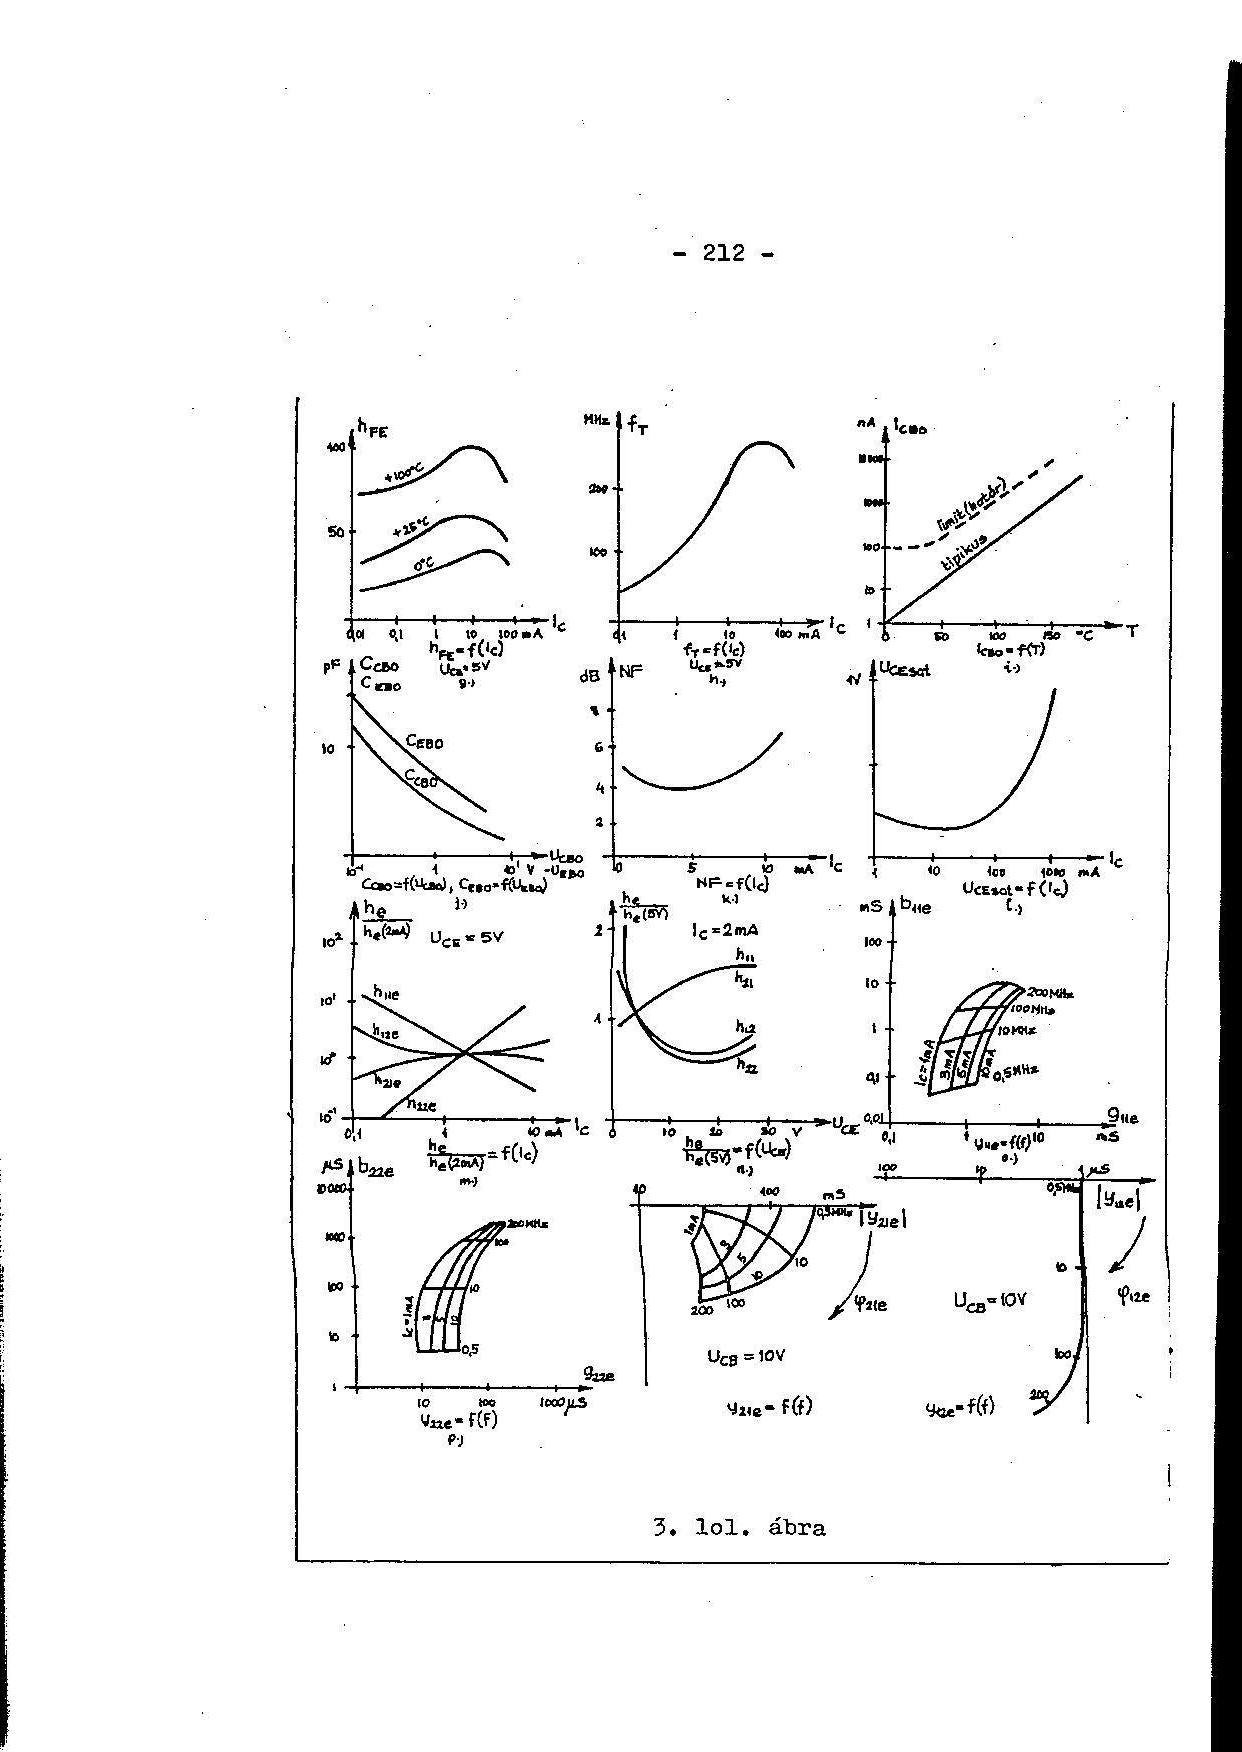 - 212 -
hFE
400
+100°C
50
+25°C
0°C
0,01 0,1 1 10 100 mA IC
hFE=f(IC)
UCE=5V
g.)
MHz fT
200
100
0,1 1 10 100 mA IC
fT=f(IC)
UCE=5V
h.)
nA ICBO
10000
1000
100
10
1
limit(határ)
tipikus
0 50 100 150 °C T
ICBO=f(T)
i.)
pF CCBO
CEBO
10
CEBO
CCBO
10⁻¹ 1 10¹ V UCBO
-UEBO
CCBO=f(UCBO), CEBO=f(UEBO)
j.)
dB NF
6
4
2
0 5 10 mA IC
NF=f(IC)
k.)
1V UCEsat
1 10 100 1000 mA IC
UCEsat=f(IC)
l.)
he
he(2mA)
UCE=5V
10²
10¹
10⁰
10⁻¹
h11e
h12e
h21e
h22e
0,1 1 10 mA IC
he
he(2mA) =f(IC)
m.)
he
he(5V)
2
IC=2mA
1
h11
h21
h12
h22
0 10 20 30 V UCE
he
he(5V) =f(UCE)
n.)
mS b11e
100
10
1
0,1
0,01
200MHz
100MHz
10MHz
0,5MHz
IC=1mA 3mA 5mA 10mA
g11e
0,1 1 10 mS
y11e=f(f)
o.)
µS b22e
10000
1000
100
10
1
200MHz
100
10
0,5
IC=1mA 3 5 10
g22e
10 100 1000µS
y22e=f(F)
p.)
10 100 mS
0,5MHz |y21e|
1mA 3 5 10
10
200 100
φ21e
UCB=10V
y21e=f(f)
100 10 1 µS
0,5MHz |y12e|
10
φ12e
UCB=10V
100
200
y12e=f(f)
3. lol. ábra